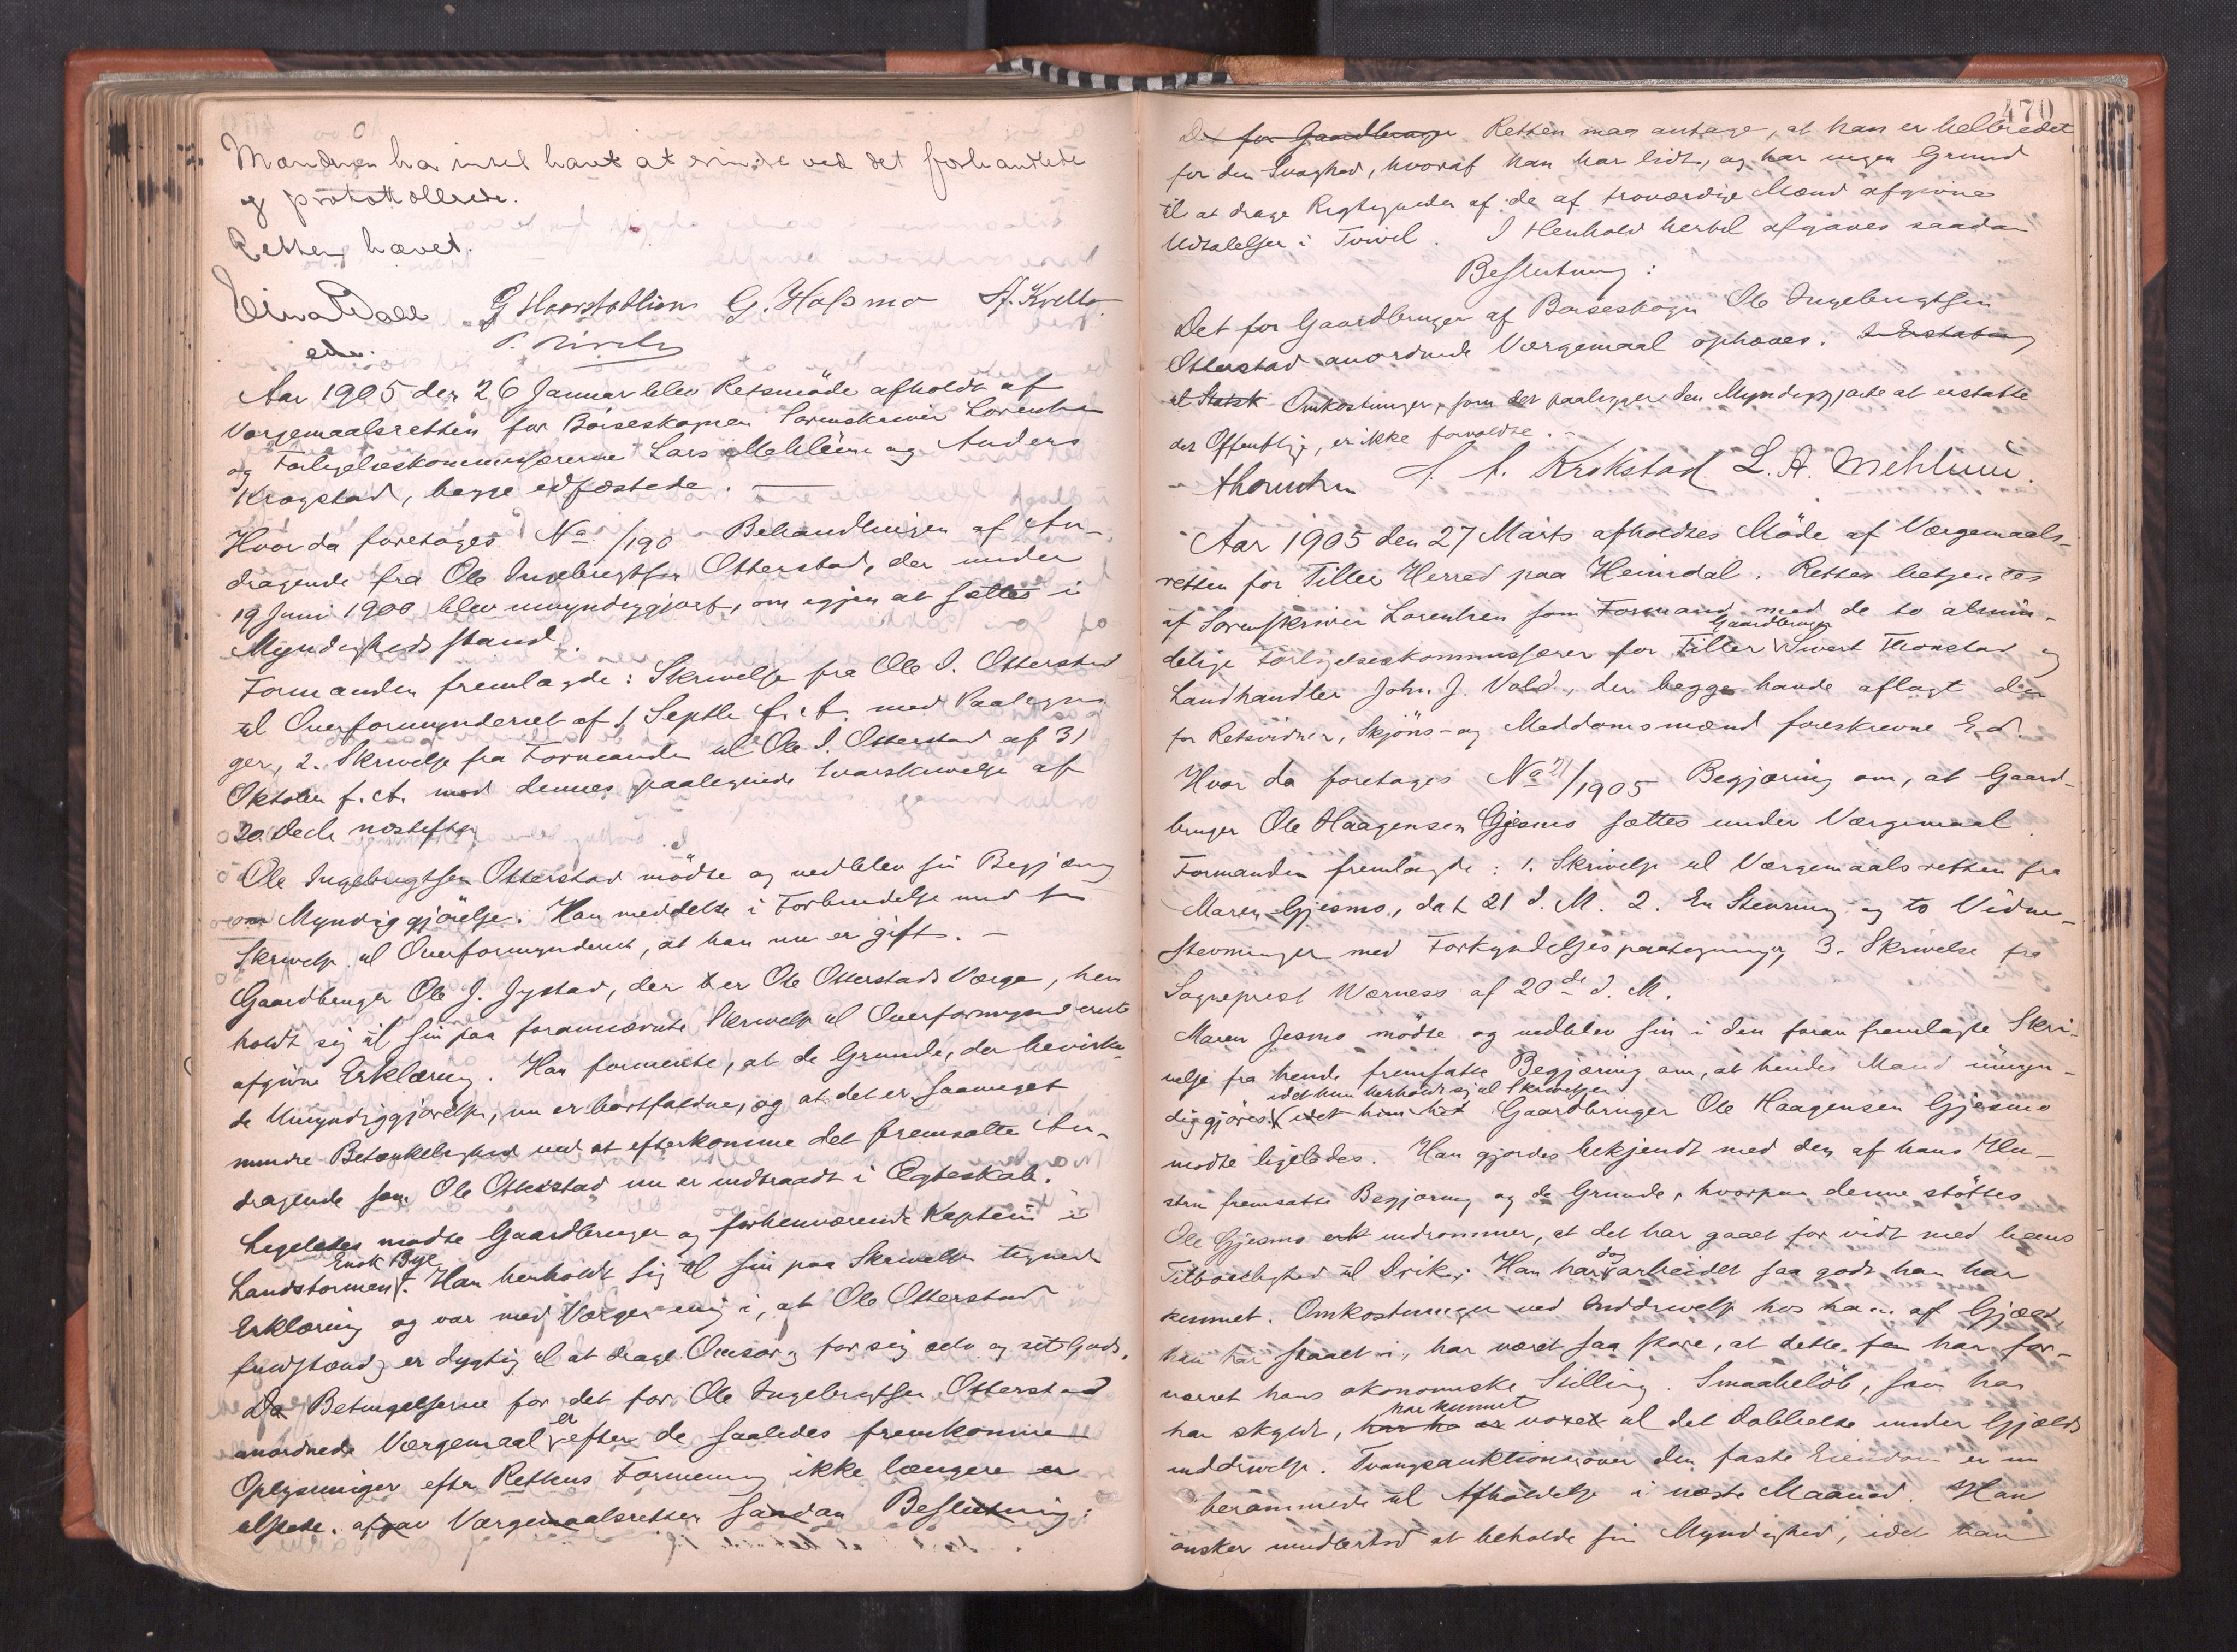 Mændenen har intet havt at erindre ved det forhandlede
og protokollerede.
Retten hævet.
Einar Dall G Haarstadtrøen G. Hafsmo A. Kvello
edv.
Aar 1905 den 26 Januar blev Retsmöde afholdt af
Værgemaalsretten for Börseskognen Sorenskriver Lorentzen
og Forligelseskommissærerne Lars Mehlum og Anders
Krogstad, begge edfæstede. —
Hvorda foretoges No /190 Behandlingen af An-
dragende fra Ole Ingebrigtsen Otterstad, der under
19 Juni 1900 blev umyndiggjort, om igjen at sættes i
Myndighedsstand.
Formanden fremlagde: Skrivelse fra Ole I. Otterstad
til Overformynderiet af 1 Septbr f. A. med Paategnin
ger, 2. Skrivelse fra Formanden til Ole I. Otterstad af 31
Oktober f. A. med dennes paategnede Svarskrivelse af
20 Decbr næstefter
Ole Ingebrigtsen Otterstad mödte og vedblev sin Begjæring
om Myndiggjörelse. Han meddelte i Forbindelse med sin
Skrivelse til Overformynderiet, at han nu er gift. —
Gaardbruger Ole J. Jystad, der er Ole Otterstads Værge, hen
holdt sig til sin paa forannævnte Skrivelse til Overformynderiet
afgivne Erklæring. Han formente, at de Grunde, der bevirke-
de Umyndiggjörelsen, nu er bortfaldne, og at det er saameget
mindre Betænkelighed ved at efterkomme det fremsatte An-
dragende som Ole Otterstad nu er indtraadt i Ægteskab.
Ligeledes mødte Gaardbruger og forhenværende Kaptein i
Enok Bye
Landstormen. Han henholdt sig til sin paa Skrivelsen tegnede
Erklæring og var med Værgen enig i, at Ole Otterstad
fuldstændig er dygtig til at drage Omsorg for sig selv og sit Gods.
Da Betingelserne for det for Ole Ingebrigtsen Otterstad
er
anordnede Værgemaal efter de saaledes fremkomne
Oplysninger efter Rettens Formening ikke længere er
tilstede. afgav Værgemaalsretten saadan Beslutning:
470
Det for Gaardbruger Retten maa antage, at han er helbredet
for den Svaghed, hvoraf han har lidt, og har ingen Grund
til at drage Rigtigheden af de af troværdige Mænd afgivne
Udtalelser i Tvivl. I Henhold hertil afgaves saadan
Beslutning:
Det for Gaardbruger af Börseskogn Ole Ingebrigtsen
Otterstad anordnede Værgemaal ophæves. I Erstatning
til Statsk Omkostninger, som det paaligger den Myndiggjorte at erstatte
det Offentlige, er ikke forvoldte. —
A. A. Krokstad L. A. Mehlum.
Aar 1905 den 27 Marts afholdtes Möde af Værgemaals-
retten for Tiller Herred paa Heimdal. Retten betjentes
af Sorenskriver Lorentzen som Formand med de to almin-
Gaardbruger
delige Forligelseskommissærer for Tiller Sivert Thonstad og
Landhandler John J. Vold, der begge havde aflagt den
for Retsvidner, Skjöns- og Meddomsmænd foreskrevne Ed.
Hvor da foretoges No 21/1905 Begjæring om, at Gaard-
bruger Ole Haagensen Gjesmo sættes under Værgemaal.
Formanden fremlagde: 1. Skrivelse til Værgemaalsretten fra
Maren Gjesmo, dat 21 d. M. 2. En Stevning og to Vidne-
stevninger med Forkyndelsespaategninger, 3. Skrivelse fra
Sogneprest Wærness af 20de d. M.
Maren Jesmo mödte og vedblev sin i den foran fremlagte Skri-
velse fra hende fremsatte Begjæring om, at hendes Mand umyn-
idet hun henholdt sig til Skrivelsen
diggjöres. idet hun hed Gaardbruger Ole Haagensen Gjesmo
mødte ligeledes. Han gjordes bekjendt med den af hans Hu-
stru fremsatte Begjæring og de Grunde, hvorpaa denne støttes.
Ole Gjesmo erk indrømmer, at det har gaaet for vidt med hans
dog
Tilbøielighed til Drik. Han har arbeidet saa godt han har
kunnet. Omkostninger ved Inddrivelse hos ham af Gjæld,
han har staaet i, har været saa store, at dette for har for-
værret hans økonomiske Stilling. Smaabelöb, som han
har kunnet
har skyldt, har ha er voxet til det dobbelte under Gjælds
inddrivelse. Tvangsauktion over den faste Eiendom er nu
berammet til Afholdelse i næste Maaned. Han
ønsker imidlertid at beholde sin Myndighed, idet han